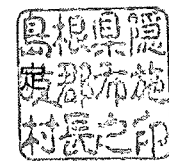 島根県隠
岐郡布施
村長之印
定